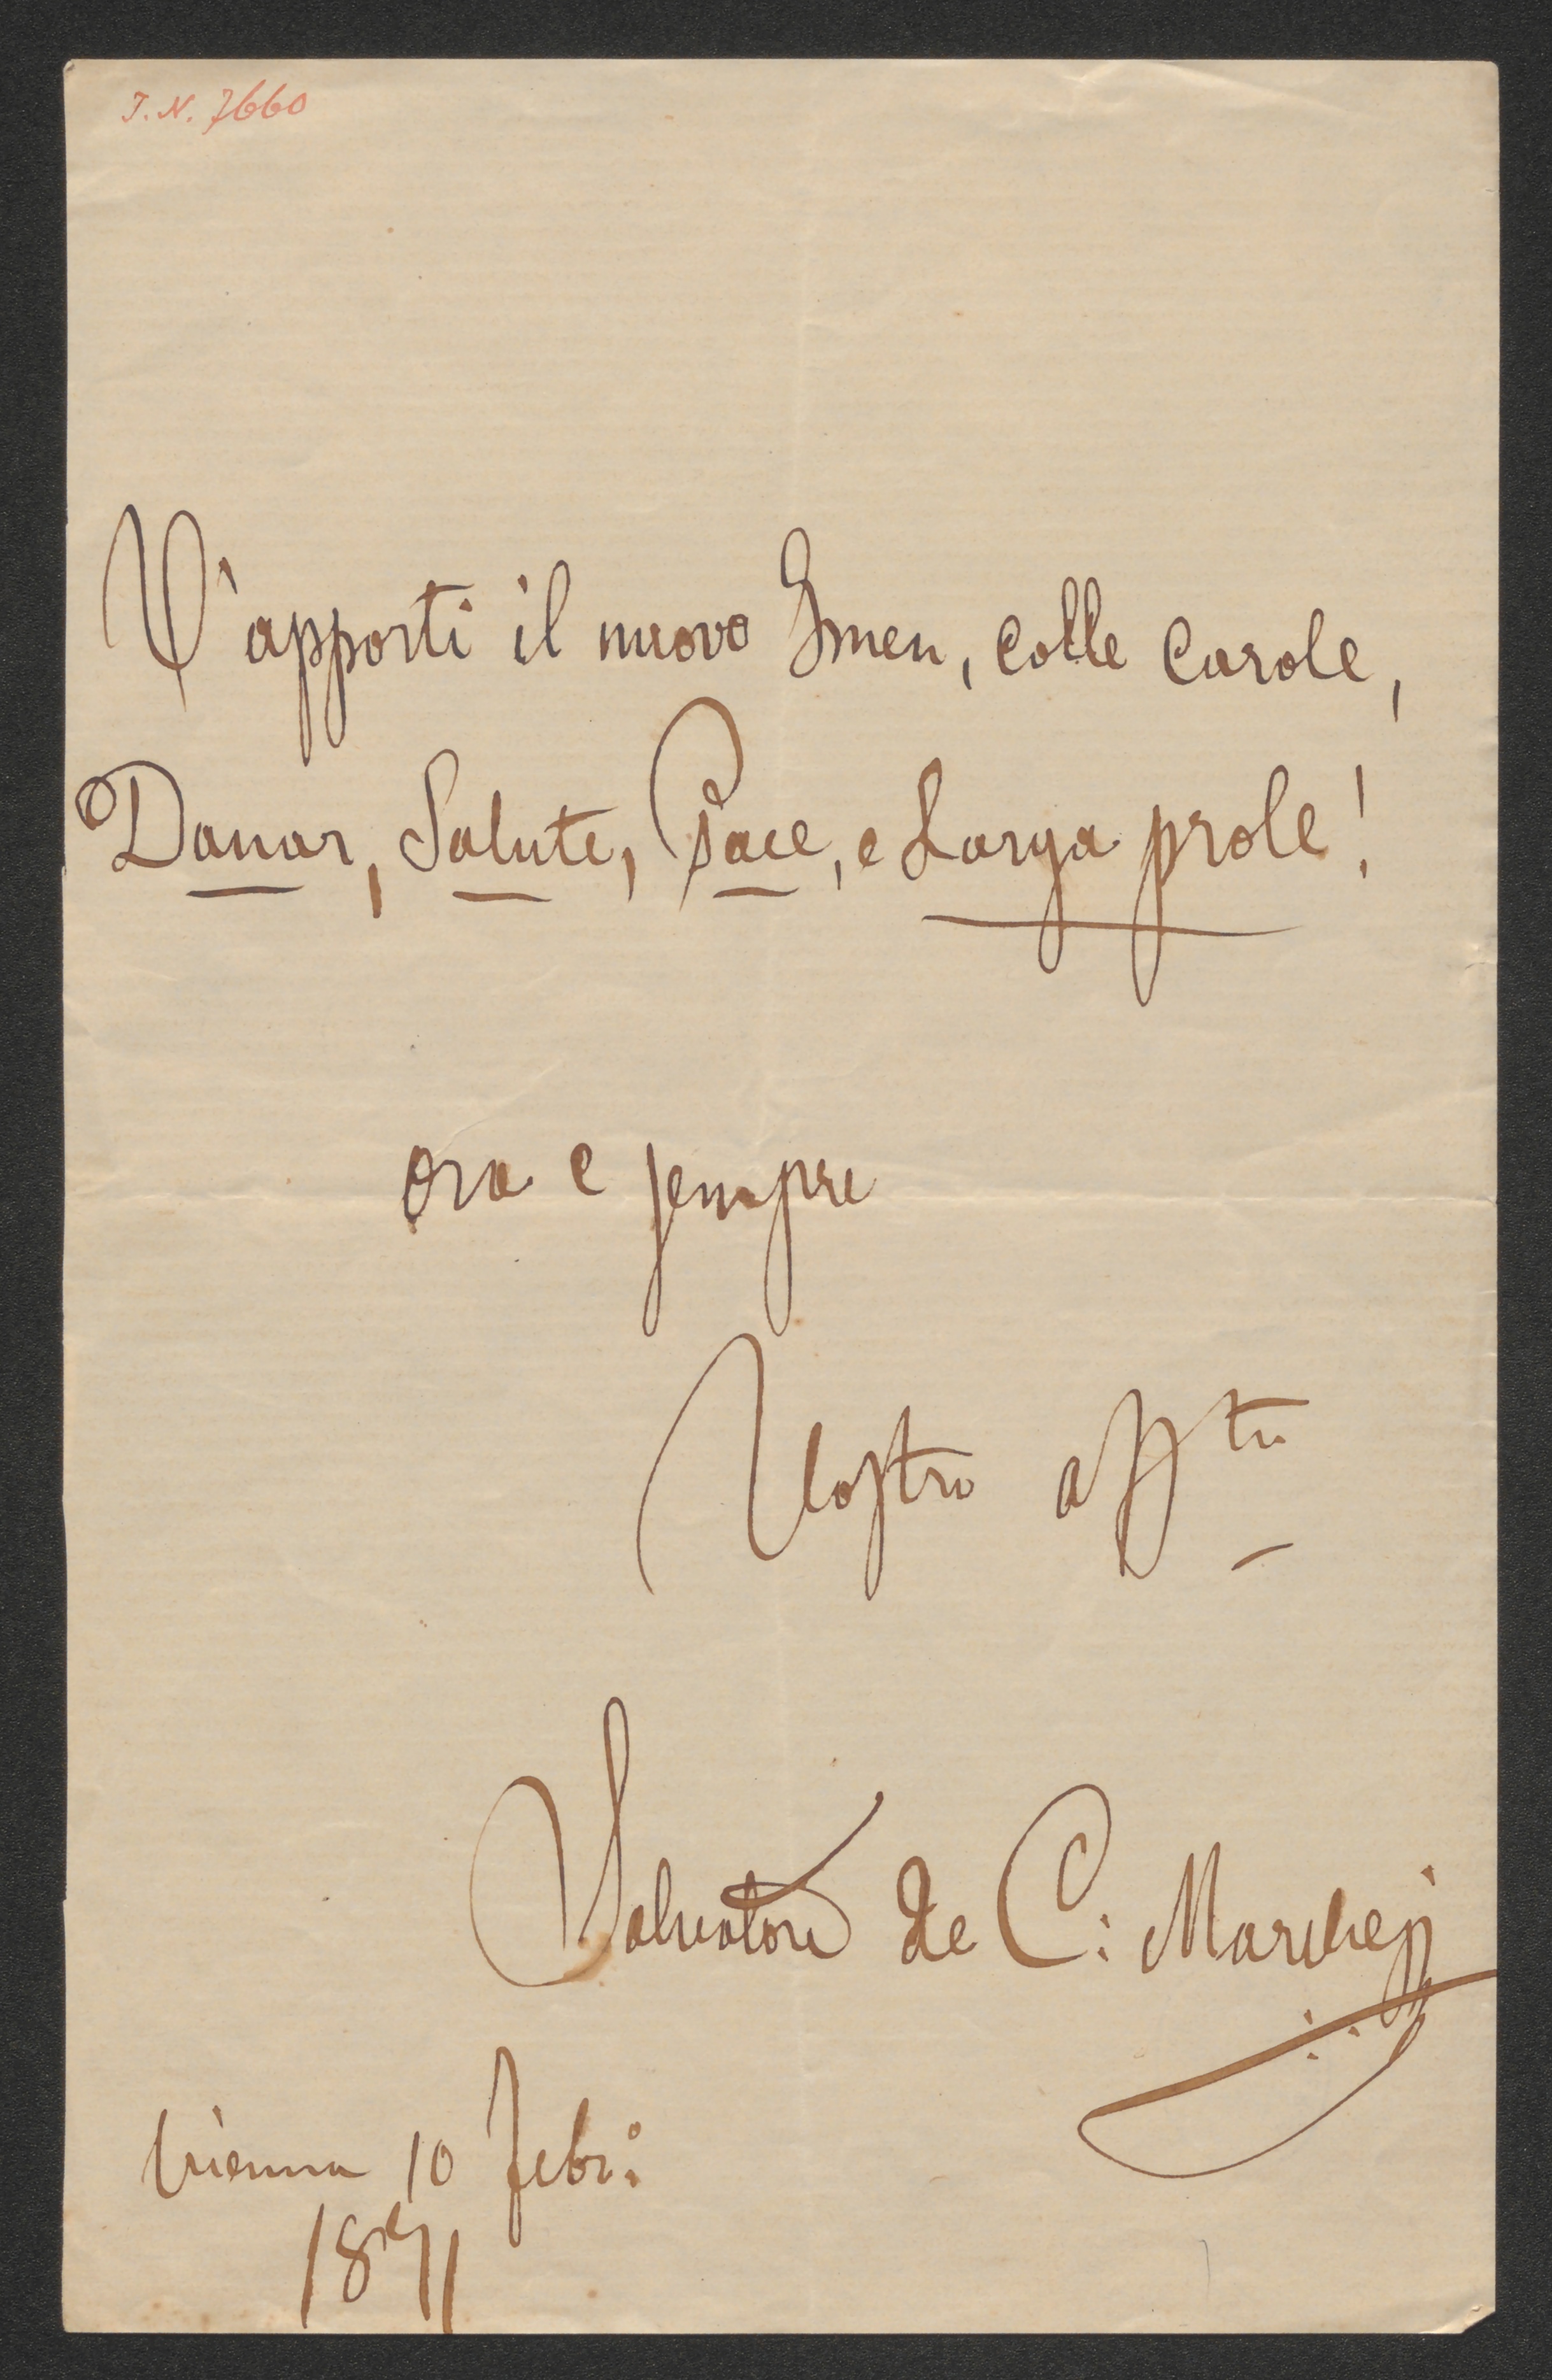 I.N. 7660
V'apporti il nuovo Imen, colle Carole,
Danar, Salute, Pace, e Larga prole!
ora e sempre
Vostro affto
Salvatore de C: Marchesi
Vienna 10 Febr:
1871